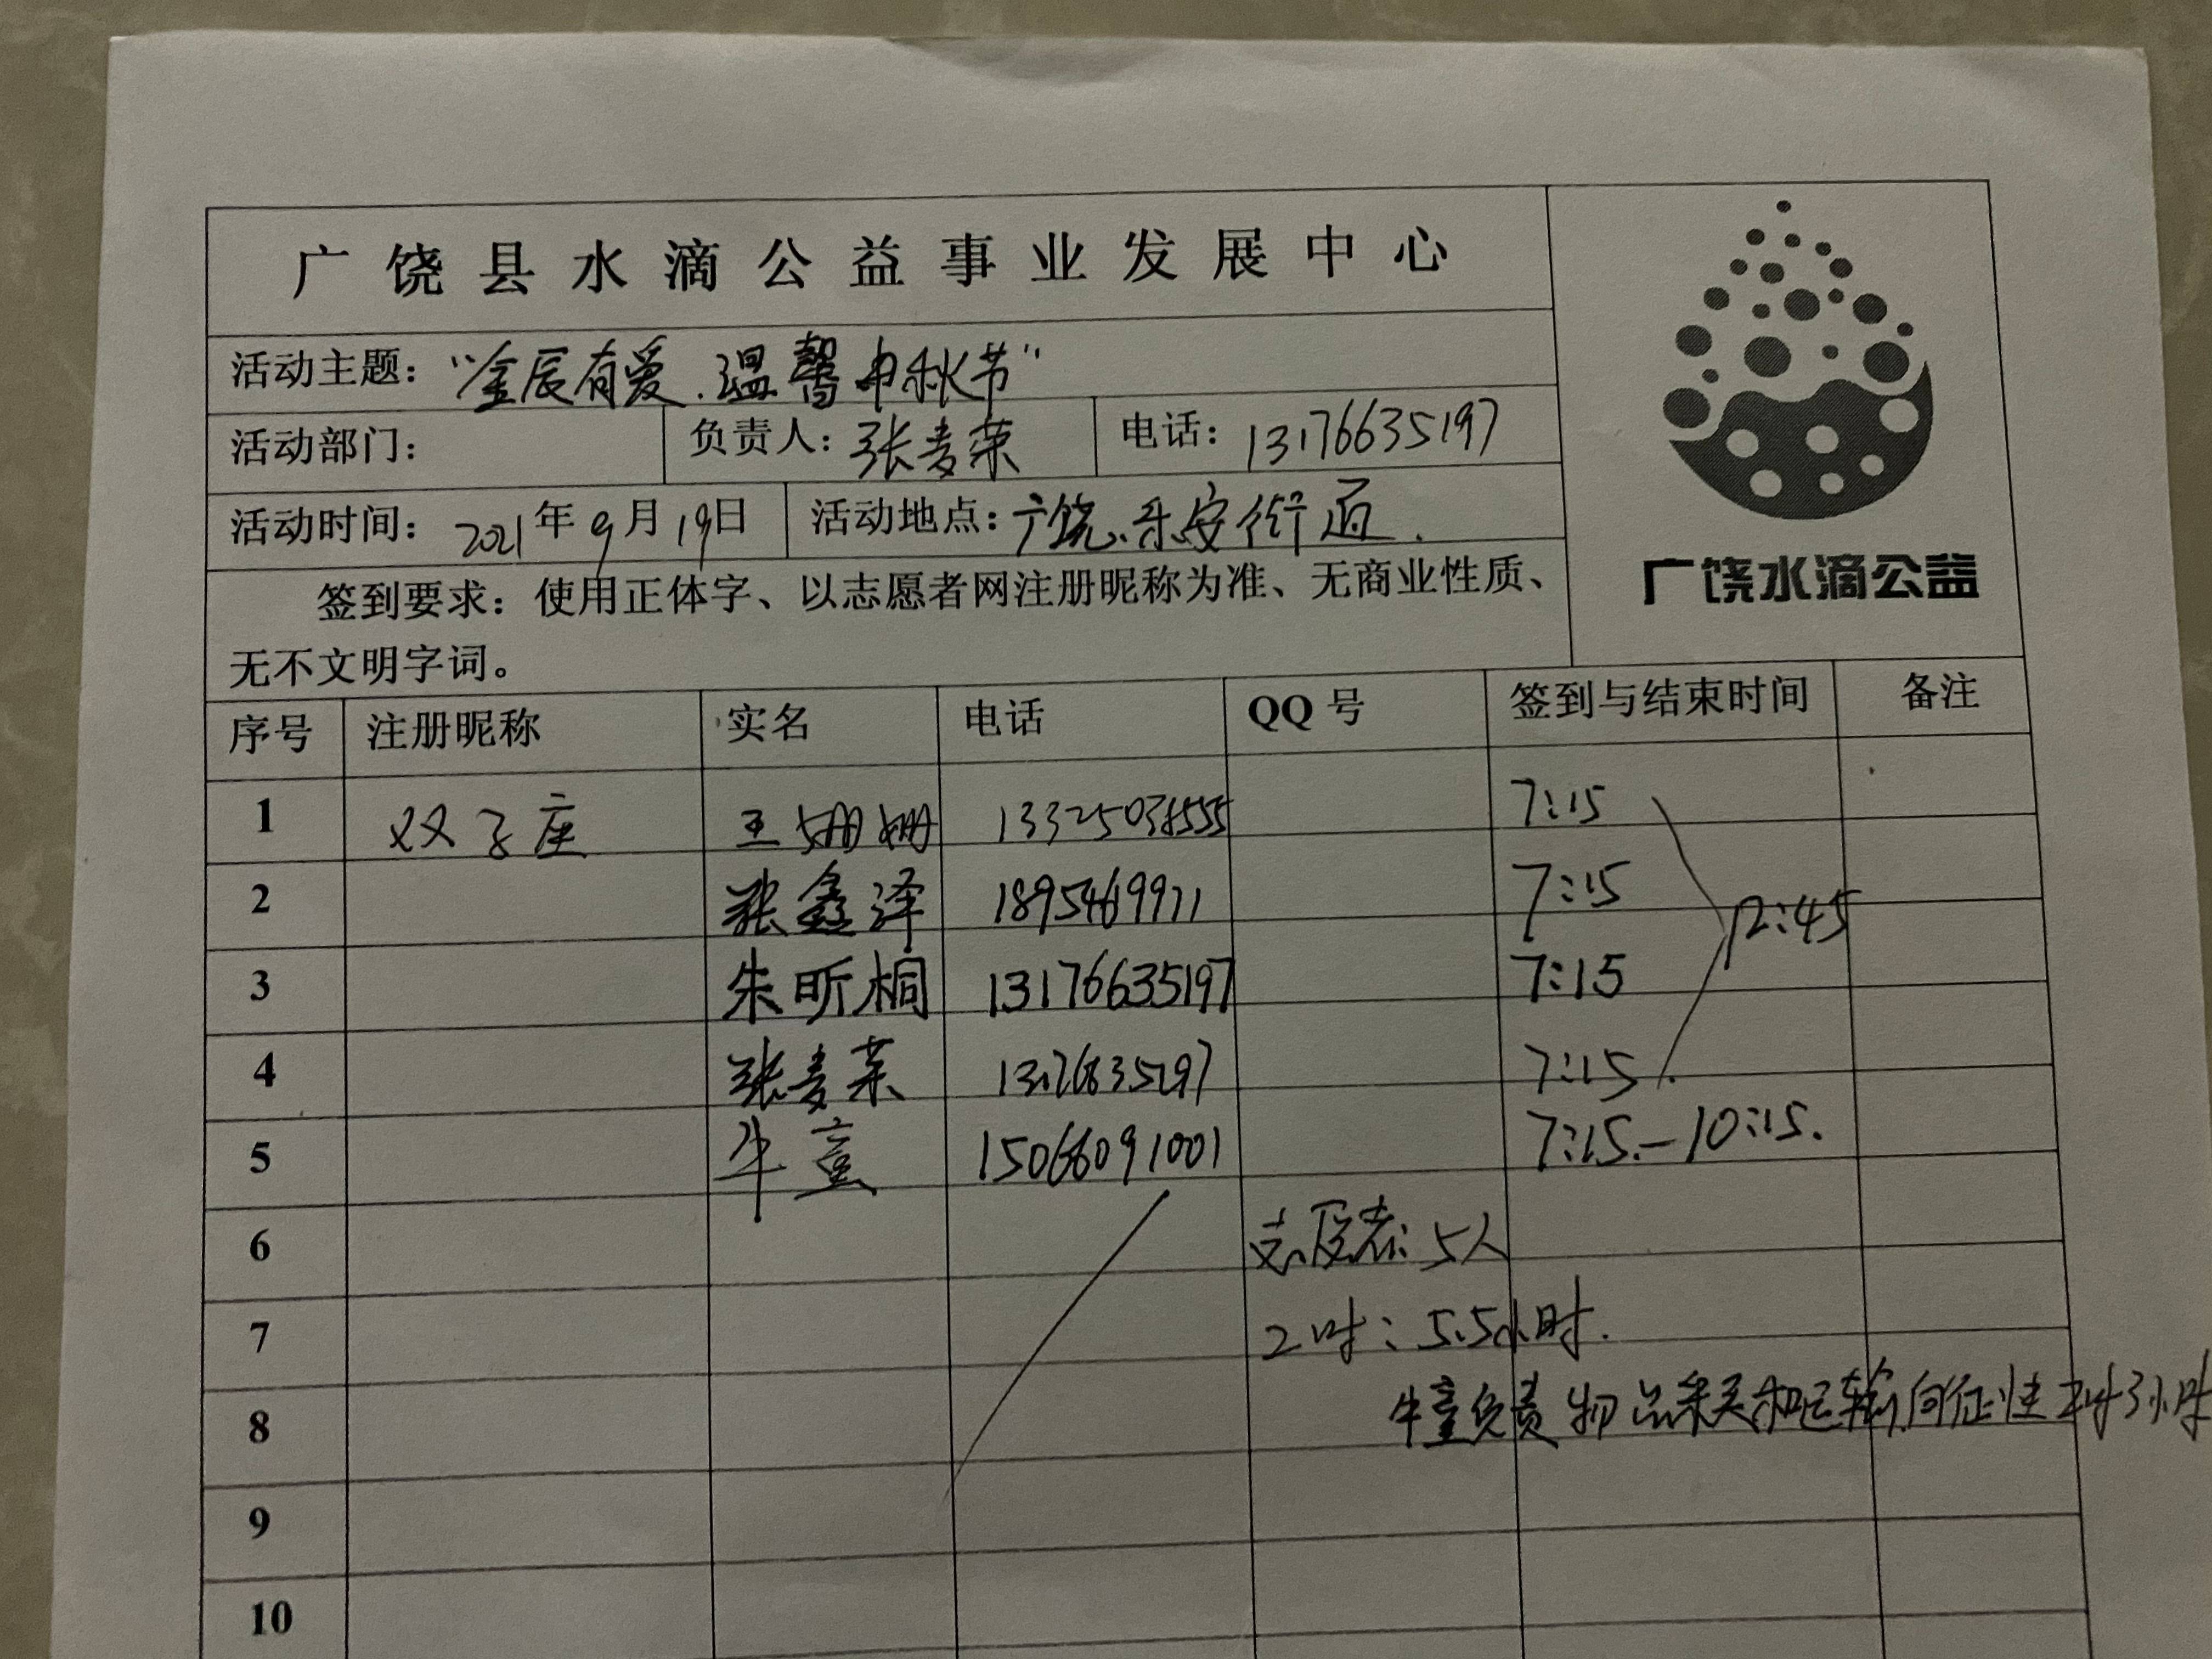 广饶县水滴公益事业发展中心
活动主题：“金辰有爱.温馨中秋节”
活动部门： 负责人：张麦荣 电话：13176635197
活动时间：2021年9月19日 活动地点：广饶.乐安街道.
广饶水滴公益
签到要求：使用正体字、以志愿者网注册昵称为准、无商业性质、
无不文明字词。
序号 注册昵称 实名 电话 QQ号 签到与结束时间 备注
1 双子座 王姗姗 7:15
2 张鑫泽 1895469971 7:15
12:45
3 朱昕桐 13176635197 7:15
4 张麦荣 7:15
5 牛童 15066091001 7:15.-10:15.
6 志愿者:5人
7 工时:5.5小时.
8 牛童负责物品采买和运输 工时3小时
9
10